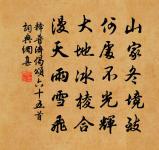 山家冬境致
何處不光輝
大地冰棱合
漫天雨雪飛
釋普濟偈頌六十五首
詞典網喜